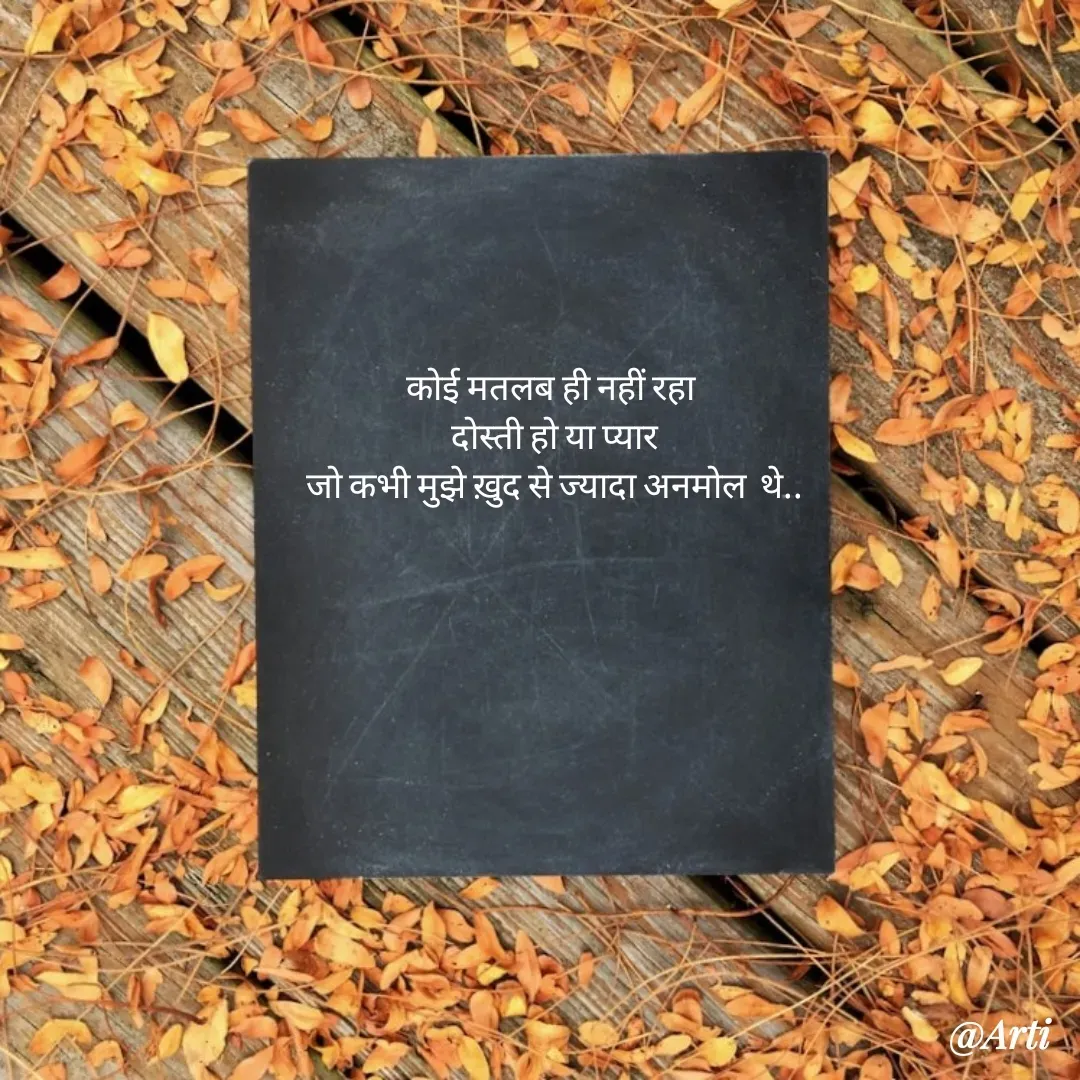 कोई मतलब ही नहीं रहा
दोस्ती हो या प्यार
जो कभी मुझे ख़ुद से ज्यादा अनमोल थे..
@Arti